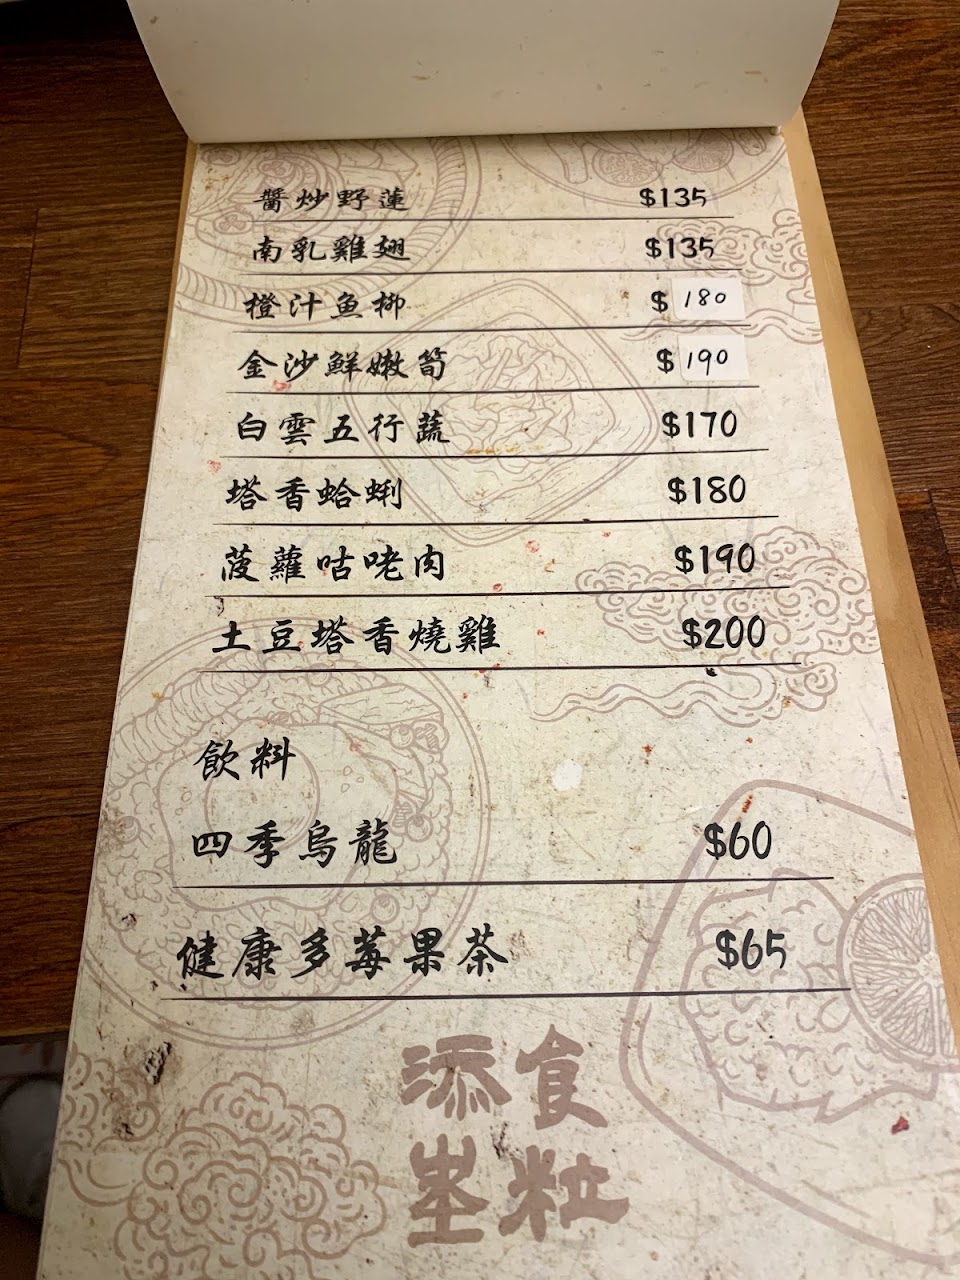 醬炒野蓮 $135
南乳雞翅 $135
橙汁魚柳 $180
金沙鮮嫩筍 $190
白雲五行蔬 $170
塔香蛤蜊 $180
菠蘿咕咾肉 $190
土豆塔香燒雞 $200
飲料
四季烏龍 $60
健康多莓果茶 $65
添食
粒